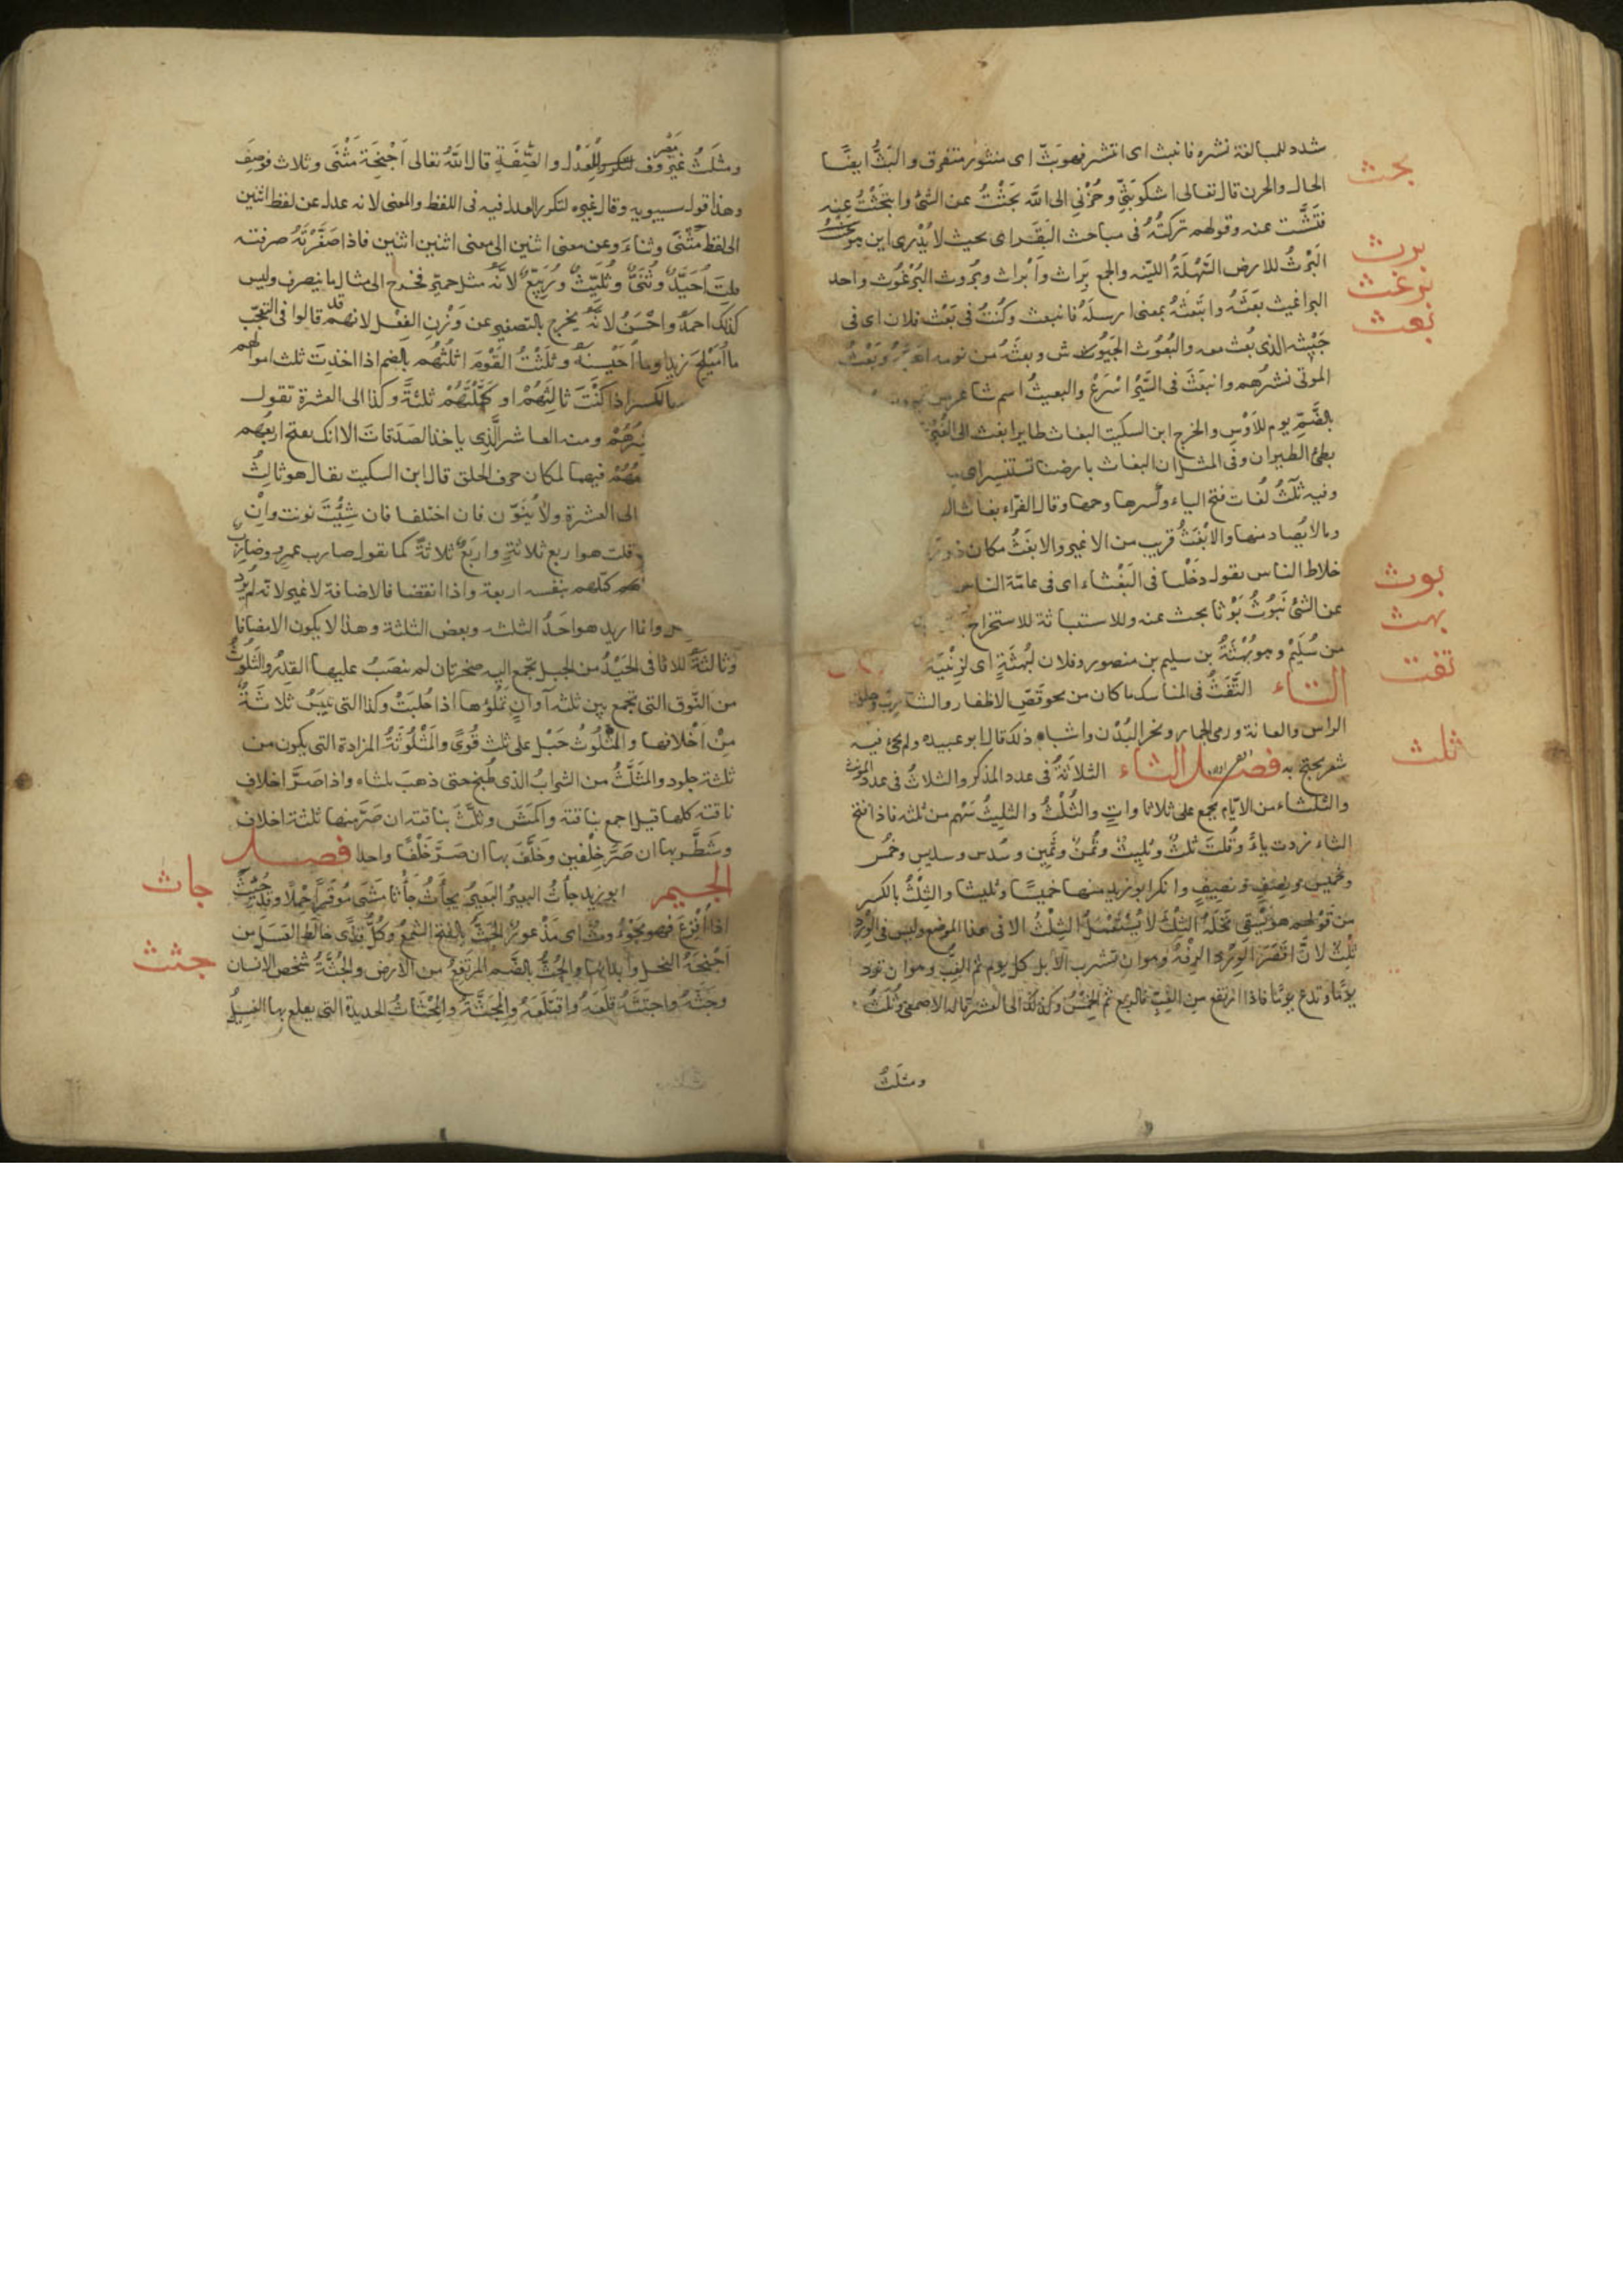 شدد للمبالغة نشره فانبث اى انتشر فهو بَثّ اى منثور متفرق والبَثُّ ايضًا
بحث
الحال والحزن قال تعالى اشكو بَثِّى وحُزْنى الى اللّه بَحَثْتُ عن الشئ وابتَحَثْتُ عنه
فَتَّشْت عنه وقولهم تركتُهُ فى مباحث البَقَر اى بحيث لا يُدْرى اين هو
برث
البَرْثُ للارض السَّهْلَةُ اللينه والجمع بِرَاث واَبْراث وبُروث البُرْغُوث واحد
برغث
البراغيث بعَثَهُ وابتَعَثَهُ بمعنى ارسله فانبعث وكُنْتُ فى بَعْث فلان اى فى
بعث
جَيْشه الذى بُعث معه والبُعُوث الجُيُوش وبعثَهُ من نومه وبَعْثُ
الموتى نشرُهم وانبعَثَ فى السَّيْرِ اسْرَعَ والبعيثُ اسم شاعر من
بالضَّمِّ يوم للاَوْسِ والخزرج ابن السكيت البغاث طاير ابغث الى الغُبْرَة
بطئ الطيران وفى المثل ان البغاث بارضنا تستنسر اى
وفيه ثلثُ لُغَات فتح الباء وكسرها وضمها وقال الفرّاء بغاث
وما لا يُصاد منها والاَبْغَثُ قريب من الاغبر والابغَثُ مكان ذو
خلاط الناس يقول دَخَلْنا فى البَغْثاء اى فى عامّة الناس
بوث
عن الشئ يَبُوثُ بَوْثا بحث عنه والاستباثة للاستخراج
بهث
من سُلَيْمٍ وهو بُهْثَةُ بن سليم بن منصور وفلان لبُهْثَةٍ اى لِزِنْيَة
تفث
التاء التَّفَثُ فى المناسك ما كان من نحو قَصِّ الاظفار والشارب وحلق
الراس والعانة ورمى الجمار ونحر البُدْن واشباه ذلك قال ابو عبيده ولم يجئ فيه
ثلث
شعر يحتج به فصل الثاء الثلاثَةُ فى عدد المذكر والثلاثُ فى عدد المؤنث
والثلثاء من الايّام يجمع على ثلاثاوات والثُّلْثُ والثليثُ سَهْم من ثلثه فاذا فتح
الثاء زدت ياءً وقُلتَ ثَلِيثٌ وثُمنٌ وثَمِين وسُدس وسديس وخُمس
وخَميس ونصف ونَصِيفٍ وانكر ابو زيد منها خميسًا وثليثا والثِّلْثُ بالكسر
من قولهم هو يَسْقى نَخْلَهُ الثِّلْثَ لا يُسْتَعْمَلُ الثِّلْثُ الا فى هذا الموضع وليس فى الوِرْدِ
ثِلْثٌ لانَّ اقصَرَ الوِرْد الرِّفْهُ وهو ان تشرب الابل كل يوم ثم الغِبُّ وهو ان تَرِد
يومًا وتدع يومًا فاذا ارتفع من الغِبِّ فالرِّبع ثم الخِمْسُ وكذلك الى العشر قاله الاصمعى وثُلَثُ
ومثلَثُ
ومثلَثُ غير مصروف للعَدْل والصِّفَةِ قال اللّه تعالى اَجْنِحَة مَثْنَى وثلاث فوصِفَ
وهذا قول سيبويه وقال غيره لتكرر العدل فيه فى اللفظ والمعنى لانه عدل عن لفظ اثنين
الى لفظ مَثْنَى وثناءَ وعن معنى اثنين الى معنى اثنين اثنين فاذا صَغَّرْتَهُ صرفته
قلت اُحَيِّدٌ وثُنَىٌّ وثُلَيِّثٌ ورُبَيِّعٌ لانَّهُ مثل حمير فخرج الى مثال ما ينصرف وليس
كذلك احمدُ واحْسَنُ لانَّهُ يخرج بالتصغير عن وَزْنِ الفِعْل لانهم قد قالوا فى التعجّب
ما اُمَيْلِحَ زيدا وما اُحَيْسِنَهُ وثَلَثْتُ القَوْمَ اثلُثُهُم بالضم اذا اخذتَ ثلث اموالهم
بالكسر اذا كنْتَ ثالِثَهُمْ او كَمَّلْتَهُمْ ثلثةً وكذا الى العشرة تقول
ومنه العاشر الَّذِى ياخذ الصَدَقات الا انك تفتح اربَعُهم
فيهما لمكان حرف الحلق قال ابن السكيت يقال هو ثالثُ
الى العشرة ولا يُنَوّن فان اختلفا فان شِئْتَ نونت وان
قلت هو رابع ثلاثةٍ ورابعٌ ثلاثةً كما تقول ضارب عمرو وضارب
كمّلهم بنفسه اربعة واذا اتفقا فالاضافة لا غير لانه لم يُرد
وانما اريد هو احَدُ الثلثه وبعض الثلثة وهذا لا يكون الا مضافا
وثالثةُ الاثافى الحَيْدُ من الجبل يجمع اليه صخرتان ثم ينصَبُ عليها القِدْرُ والثَّلُوثُ
من النُّوق التى تجمع بين ثلثه آوانٍ تملَؤُها اذا حُلِبَتْ وكذا التى تيبَسُ ثلاثَةٌ
مِنْ اَخْلافها والمَثْلُوثُ حَبْل على ثلث قُوًى والمَثْلُوثَةُ المزادة التى يكون من
ثلثة جلود والمثَلَّثُ من الشرابُ الذى طُبخ حتى ذهبَ ثلثاه واذا صَرَّ اخلاف
ناقته كلها قيل اجمع بناقته واكمَشَ وثَلَّثَ بناقته ان صَرَّ منها ثلثة اخلاف
وشَطَّر بها ان صَرَّ خِلْفين وخَلَّفَ بها ان صَرَّ خِلْفًا واحدا فصل
جاث
الجيم ابو زيد جأثَ البعيرُ يجأثُ جَأْثا مَشَى مُوقَرًا حِمْلًا وقد جُئِثَ
اذا اُفْزِعَ فهو مجؤُوث اى مَذْعورٌ الجَثُّ بالفتح الشمعُ وكلُّ قذًى خالط العَسَل من
جثث
اَجْنِحَةُ النحل وابدانها والجُثُّ بالضَّم المرتفعُ من الارض والجُثَّةُ شخص الانسان
وجَثَّهُ واجتَثَّهُ قَلَعَهُ واقتَلَعَهُ والمِجَثَّةُ والمِجْثَاثُ الحديدة التى يقلع بها الفسيلُ